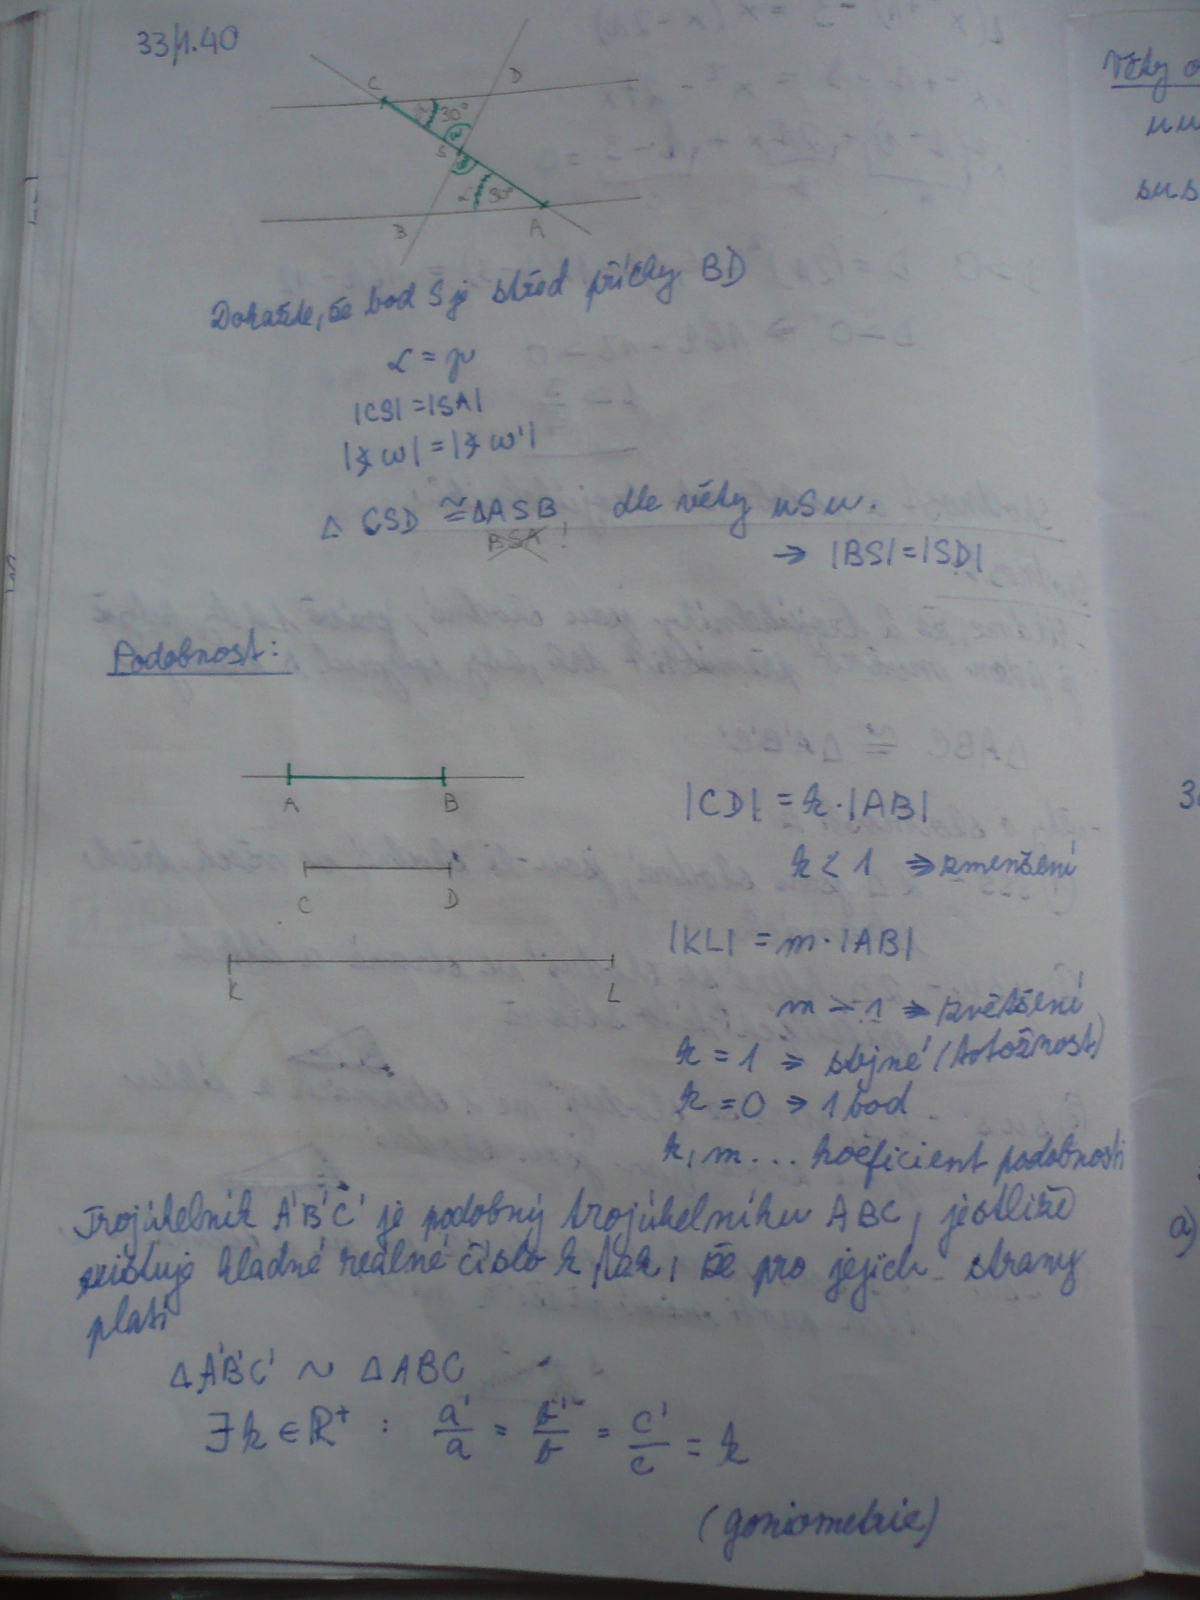 33/1.40
C
D
30°
S
30°
B
A
Dokažte, že bod S je střed příčky BD
α = γ
|CS| = |SA|
|∢ω| = |∢ω'|
△ CSD ≅ △ASB dle věty usu.
BSA !
→ |BS| = |SD|
Podobnost:
A B
|CD| = k·|AB|
k < 1 ⇒ zmenšení
C D
|KL| = m·|AB|
K L
m > 1 ⇒ zvětšení
k = 1 ⇒ stejné (totožnost)
k = 0 ⇒ 1 bod
k, m ... koeficient podobnosti
Trojúhelník A'B'C' je podobný trojúhelníku ABC, jestliže
existuje kladné reálné číslo k tak, že pro jejich strany
platí
△A'B'C' ~ △ABC
∃ k ∈ R⁺ : a'/a = b'/b = c'/c = k
(goniometrie)
Věty o
sus
a)